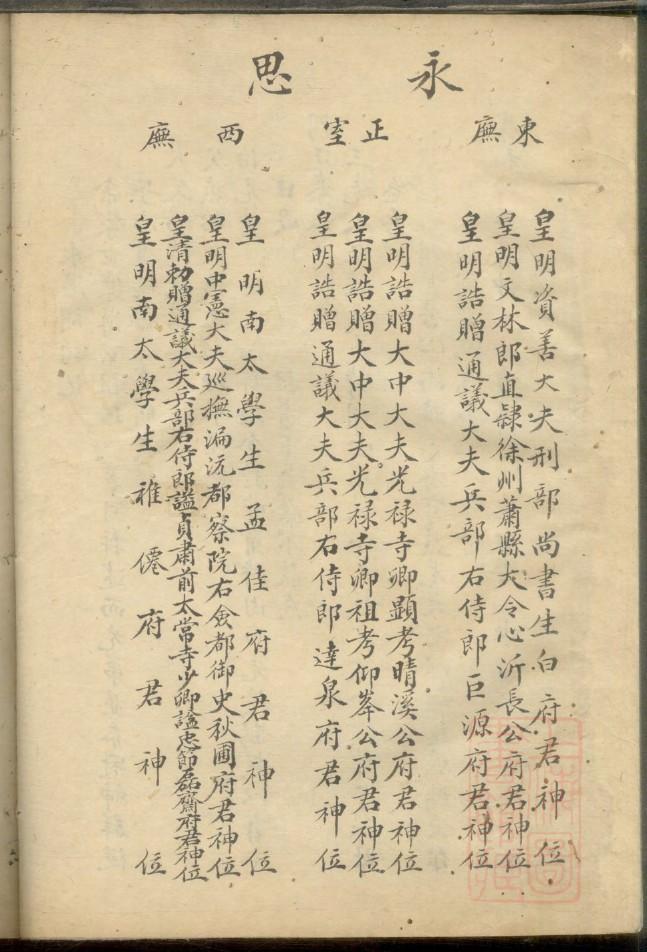 永思
東廡
皇明資善大夫刑部尚書生白府君神位
皇明文林郎直隸徐州蕭縣大令心沂長公府君神位
皇明誥贈通議大夫兵部右侍郎巨源府君神位
正室
皇明誥贈大中大夫光禄寺卿顯考晴溪公府君神位
皇明誥贈大中大夫光禄寺卿祖考仰峯公府君神位
皇明誥贈通議大夫兵部右侍郎達泉府君神位
西廡
皇明南太學生孟佳府君神位
皇明中憲大夫巡撫漏沅都察院右僉都御史秋圃府君神位
皇清勅贈通議大夫兵部右侍郎謚貞肅前太常寺少卿謚忠節磊齋府君神位
皇明南太學生稚僊府君神位